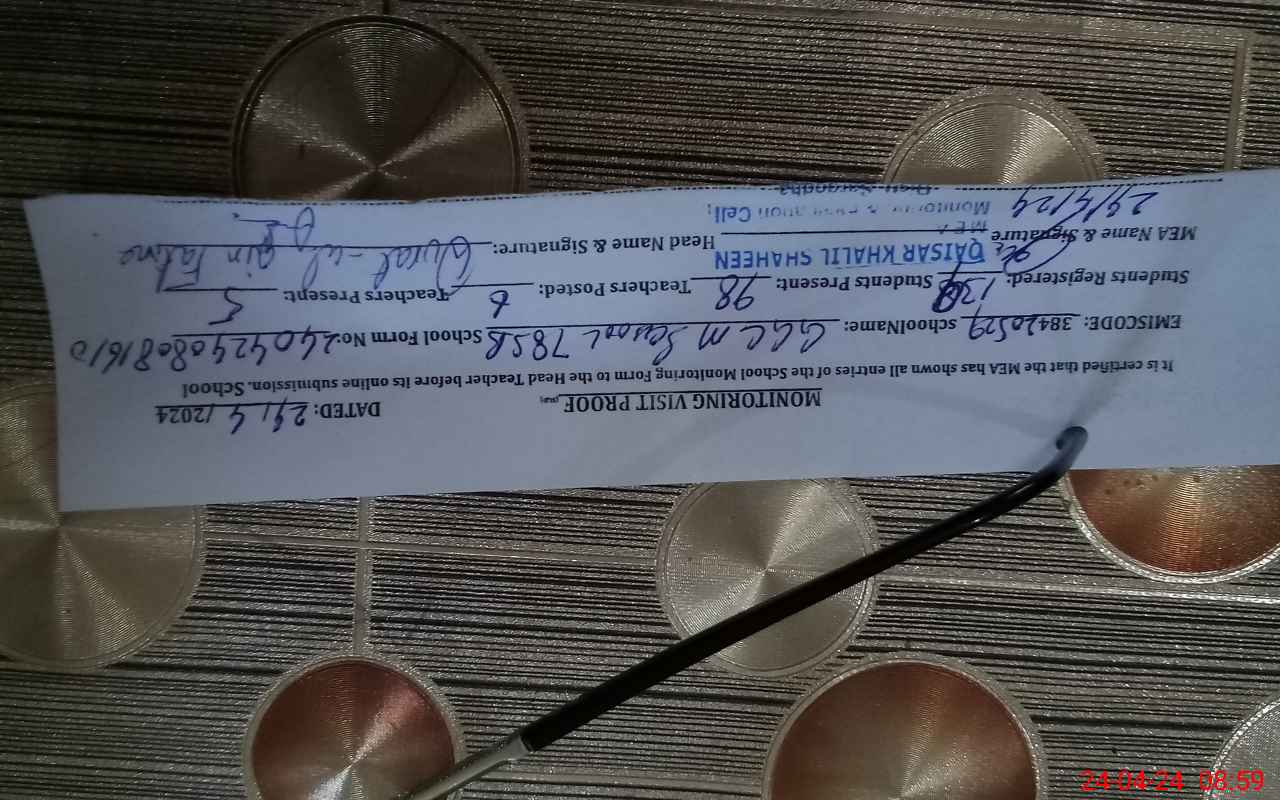 MONITORING VISIT PROOF DATED: 24/4/2024
It is certified that the MEA has shown all entries of the School Monitoring Form to the Head Teacher before its online submission. School
EMISCODE: 38420529 schoolName: GGCM School 78SB School Form No: 24042408081610
Students Registered: Students Present: 98 Teachers Posted: 6 Teachers Present: 5
QAISAR KHALIL SHAHEEN
MEA Name & Signature Head Name & Signature: Qurat-ul-Ain Fatima
MEA
24/4/24 Cell;
24-04-24 08:59